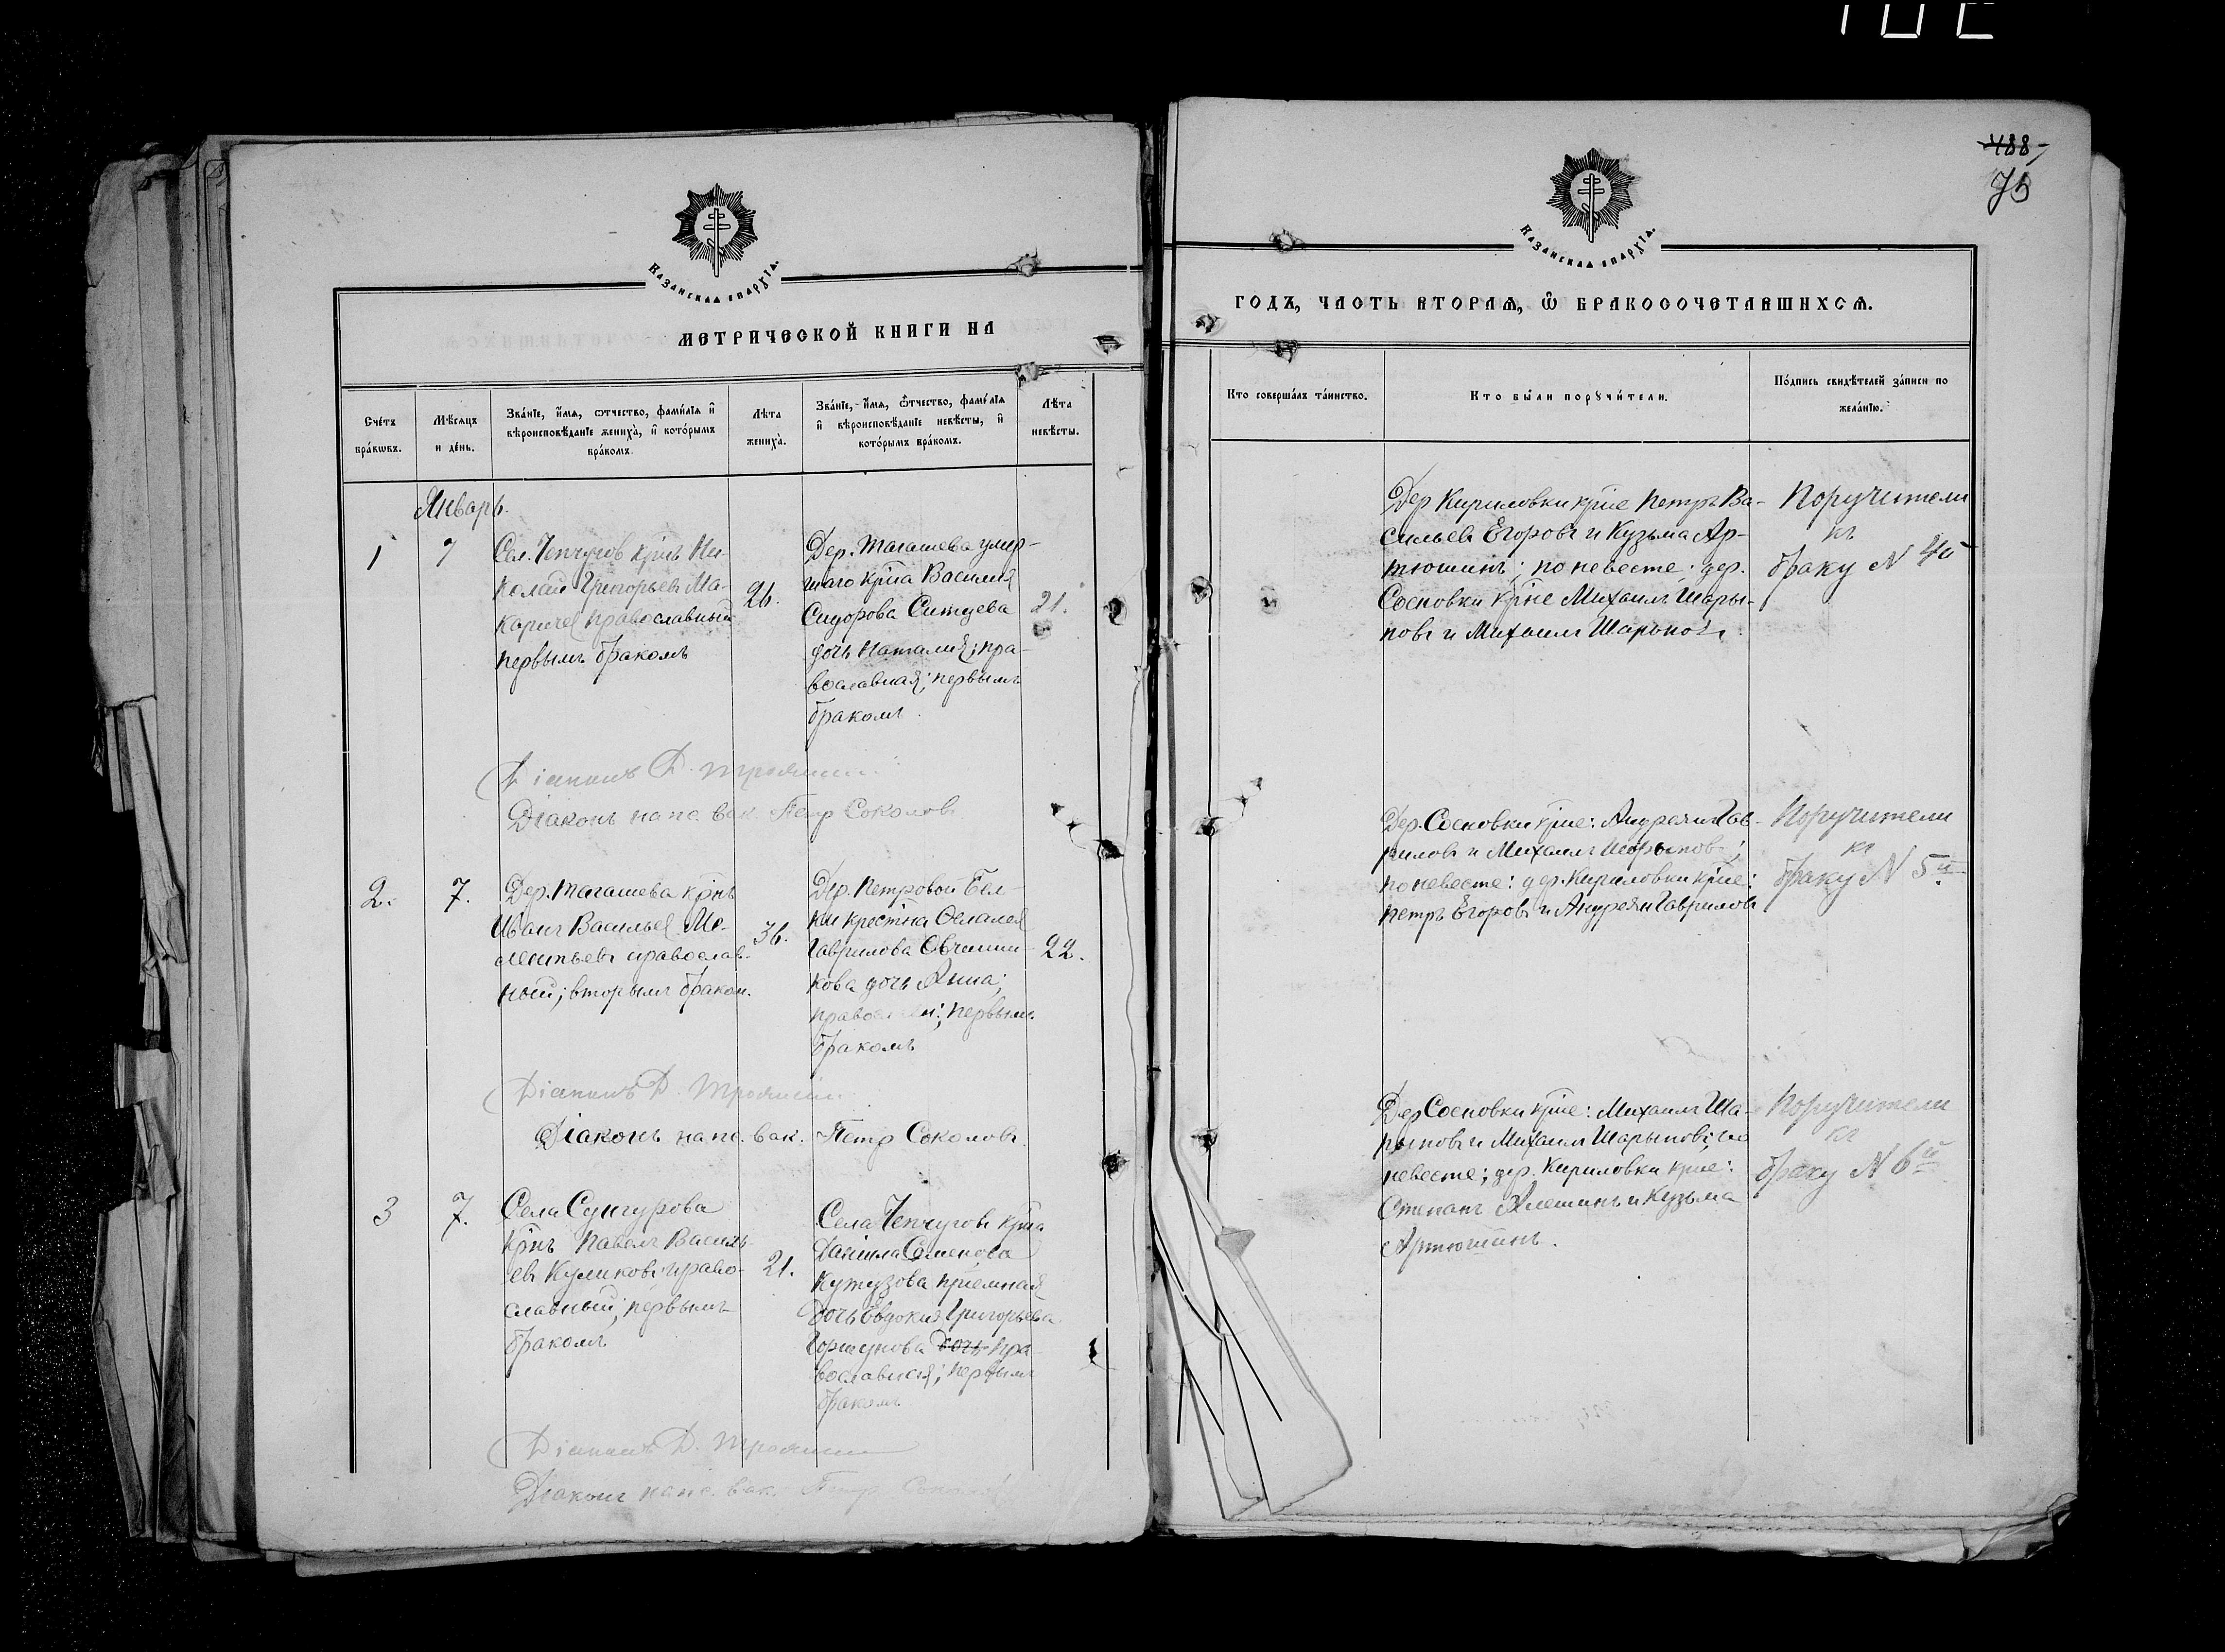 488
75
Казанская епархія.
МЕТРИЧЕСКОЙ КНИГИ НА
Счетъ браковъ.
Мѣсяцъ и день.
Званіе, имя, отчество, фамилія и вѣроисповѣданіе жениха, и которымъ бракомъ.
Лѣта жениха.
Званіе, имя, отчество, фамилія и вѣроисповѣданіе невѣсты, и которымъ бракомъ.
Лѣта невѣсты.
Январь.
1
7
Сел. Чепчугов крнъ Ни-
колай Григорьевъ Ма-
православный
первымъ бракомъ
26.
Дер. Тагашева умер-
шаго крна Василия
Сидорова Ситцева
дочь Наталия; пра-
вославная; первымъ
бракомъ.
21.
Діаконъ Д.
Діаконъ на пс. вак. Петр Соколовъ
2.
7.
Дер. Тагашева крнъ
Иванъ Васильев
православ-
ный; вторымъ браком.
36.
Дер. Петровой
Гаврилова Овчинни-
кова дочь Анна;
первымъ
бракомъ
22.
Діаконъ Д.
Діаконъ на пс. вак. Петр Соколовъ.
3
7.
Села Сунгурова
крнъ Павелъ Василь-
евъ Куликовъ; право-
славный; первымъ
бракомъ
21.
Села Чепчуговъ крна
Данила Семенова
Кутузова приемная
дочь Евдокия Григорьева
Горшунова дочь пра-
вославная; первымъ
бракомъ
Діаконъ Д.
Діаконъ на пс. вак. Петр
Казанская епархія.
ГОДЪ, ЧАСТЬ ВТОРАЯ, Ѿ БРАКОСОЧЕТАВШИХСЯ.
Кто совершалъ таинство.
Кто были поручители.
Подпись свидѣтелей записи по желанію.
Дер Кириловки крне Петръ Ва-
сильевъ Егоровъ и Кузьма Ар-
тюшинъ; по невесте: дер.
Сосновки крне Михаилъ Шары-
повъ и Михаилъ Шарыповъ.
Поручители
къ
браку N 4й
Дер. Сосновки крне: Андреян Гав-
риловъ и Михаилъ Шарыповъ;
по невесте: дер. Кириловки крне:
Петръ Егоровъ и Андреян Гавриловъ
Поручители
къ
браку N 5й
Дер Сосновки крне: Михаилъ Ша-
рыповъ и Михаилъ Шарыповъ; по
невесте; дер. Кириловки крне:
Степанъ Алешинъ и Кузьма
Артюшинъ.
Поручители
къ
браку N 6й